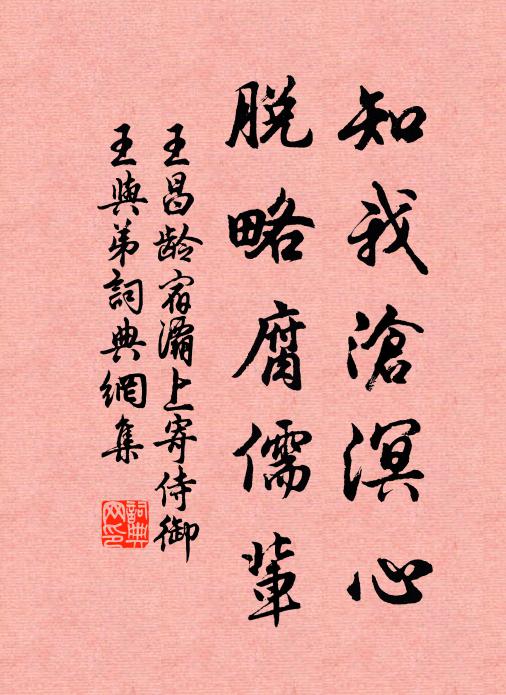 知我滄溟心
脱略腐儒輩
王昌龄宿灞上寄侍御
玙弟詞典網集
詞典网印